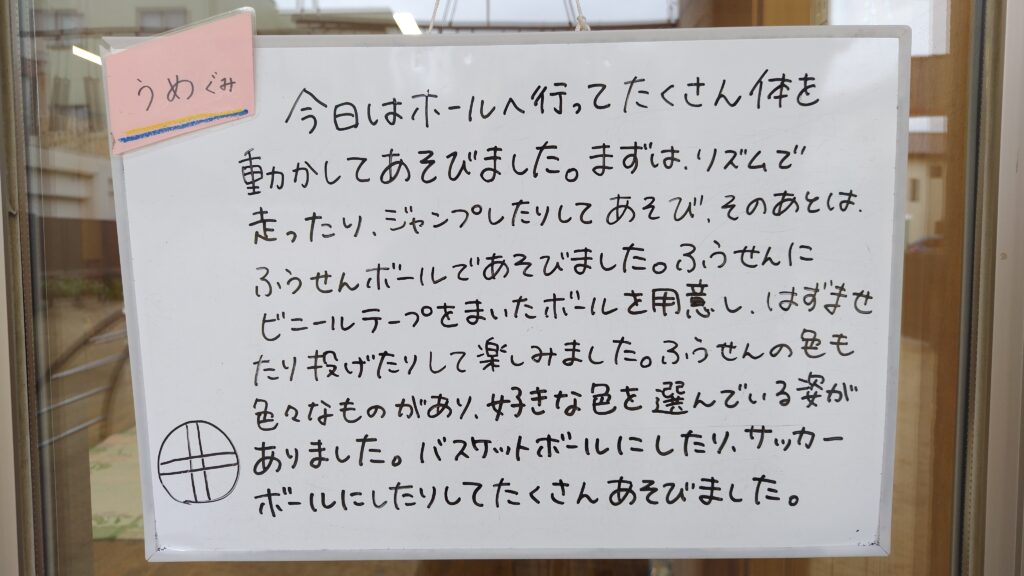 うめぐみ
今日はホールへ行ってたくさん体を
動かしてあそびました。まずは、リズムで
走ったり、ジャンプしたりしてあそび、そのあとは、
ふうせんボールであそびました。ふうせんに
ビニールテープをまいたボールを用意し、はずませ
たり投げたりして楽しみました。ふうせんの色も
色々なものがあり、好きな色を選んでいる姿が
ありました。バスケットボールにしたり、サッカー
ボールにしたりしてたくさんあそびました。